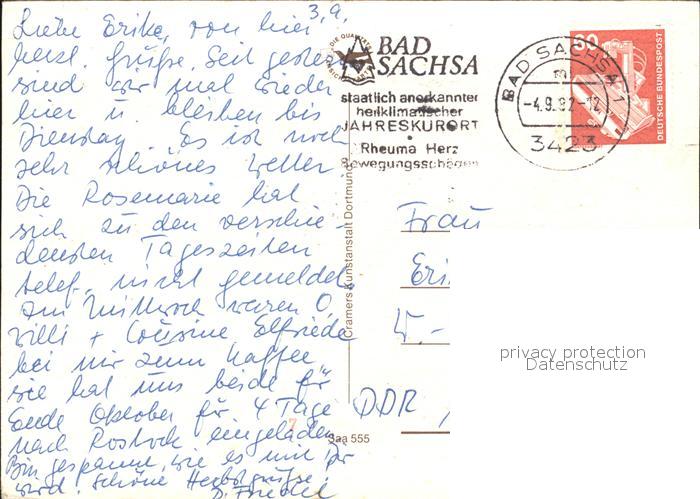 3.9.
Liebe Erika, von hier
herzl. Grüße. Seit gestern
sind wir mal wieder
hier u. bleiben bis
Dienstag. Es ist noch
sehr schönes Wetter.
Die Rosemarie hat
sich zu den verschie-
densten Tageszeiten
telef. nicht gemeldet.
Am Mittwoch waren O.
Willi + Cousine Elfriede
bei mir zum Kaffee
sie hat uns beide für
Ende Oktober für 4 Tage
nach Rostock eingeladen.
Bin gespannt, wie es mit ihr
wird. Schöne Herbstgrüße
DIE QUALITÄT
BAD
SACHSA
staatlich anerkannter
heilklimatischer
JAHRESKURORT
Rheuma Herz
Bewegungsschäden
BAD SACHSA 1
-4.9.82-12
3423
60
DEUTSCHE BUNDESPOST
Cramers Kunstanstalt Dortmund
Frau
Eri
W.-
DDR
7
Saa 555
privacy protection
Datenschutz